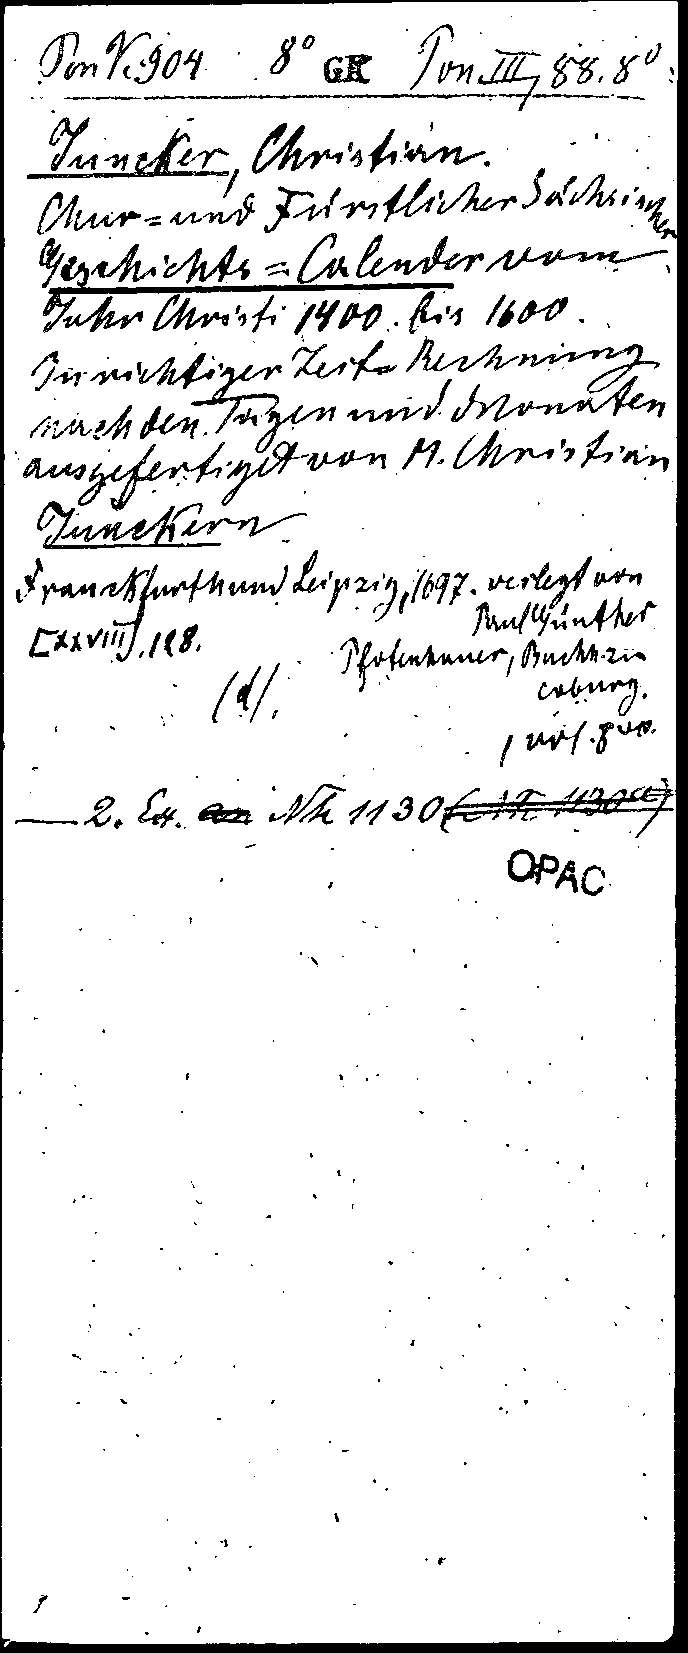 Pon V. 904 8° GK Pon. III, 88. 8°
Juncker, Christian.
Chur= und Fürstlicher Sächsischer
Geschichts= Calender vom
Jahr Christi 1400. bis 1600.
In richtiger Zeit= Rechnung
nach den Tagen und Monaten
ausgefertiget von M. Christian
Junckern
Franckfurth und Leipzig, 1697. verlegt von
Paul Günther
[XXVIII], 188. Pfotenhauer, Buchh. zu
Coburg.
(d).
1 vol. 8vo.
— 2. Ex. an Nh 1130 (Nh 1130a)
OPAC